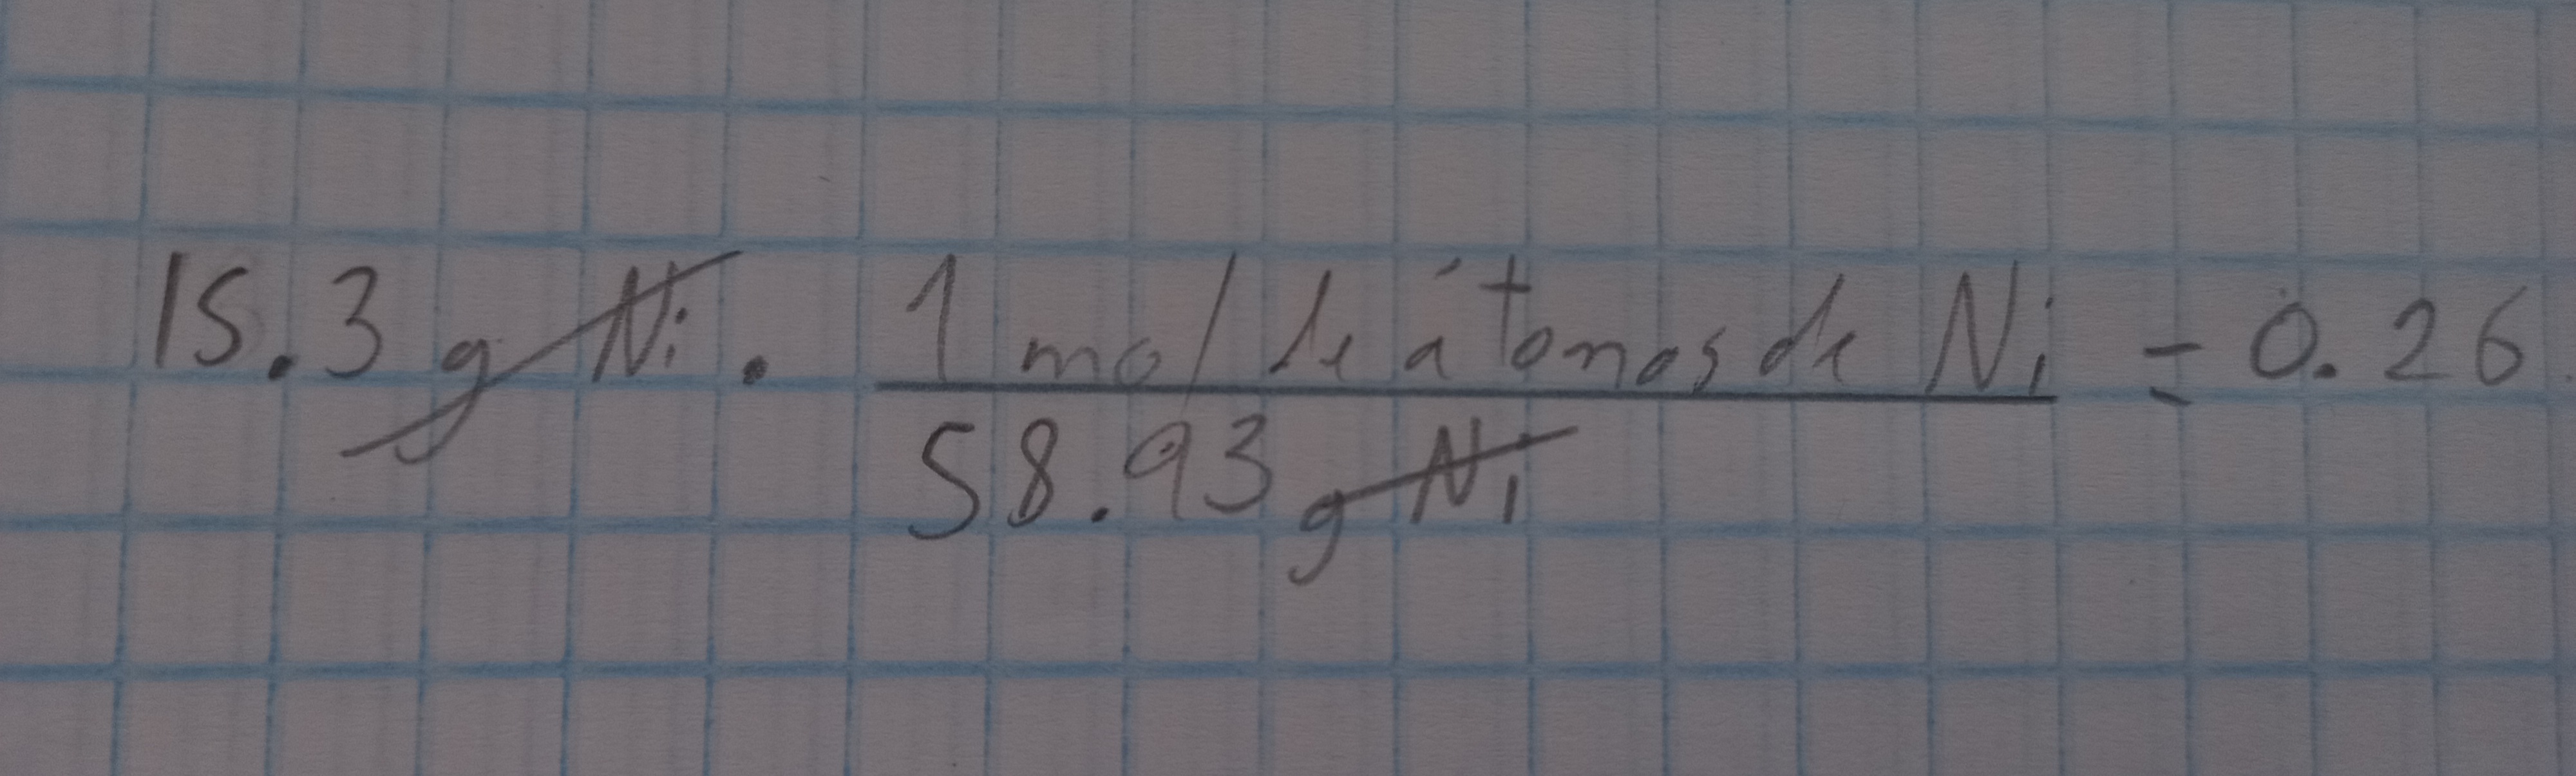 15.3 g Ni . 1 mol de átomos de Ni = 0.26
58.93 g Ni